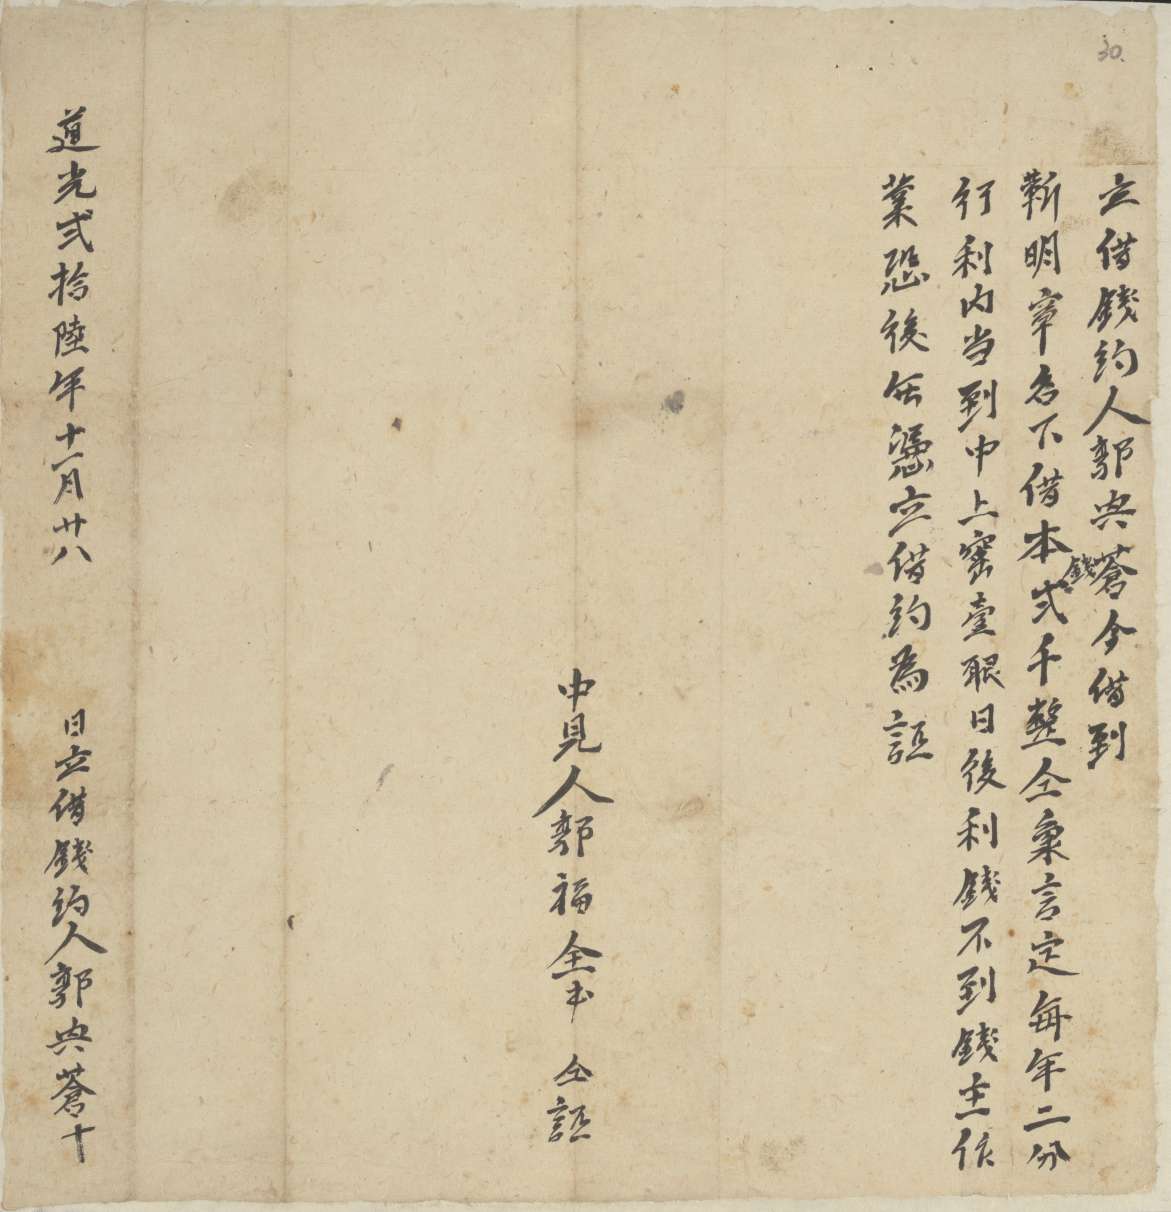 30.
立借錢約人郭典蒼今借到
靳明章名下借本錢弍千整仝衆言定每年二分
行利內当到中上窑壹眼日後利錢不到錢主作
業恐後無憑立借約為証
中見人郭福全书 仝証
道光弍拾陸年十一月廿八 日立借錢約人郭典蒼十